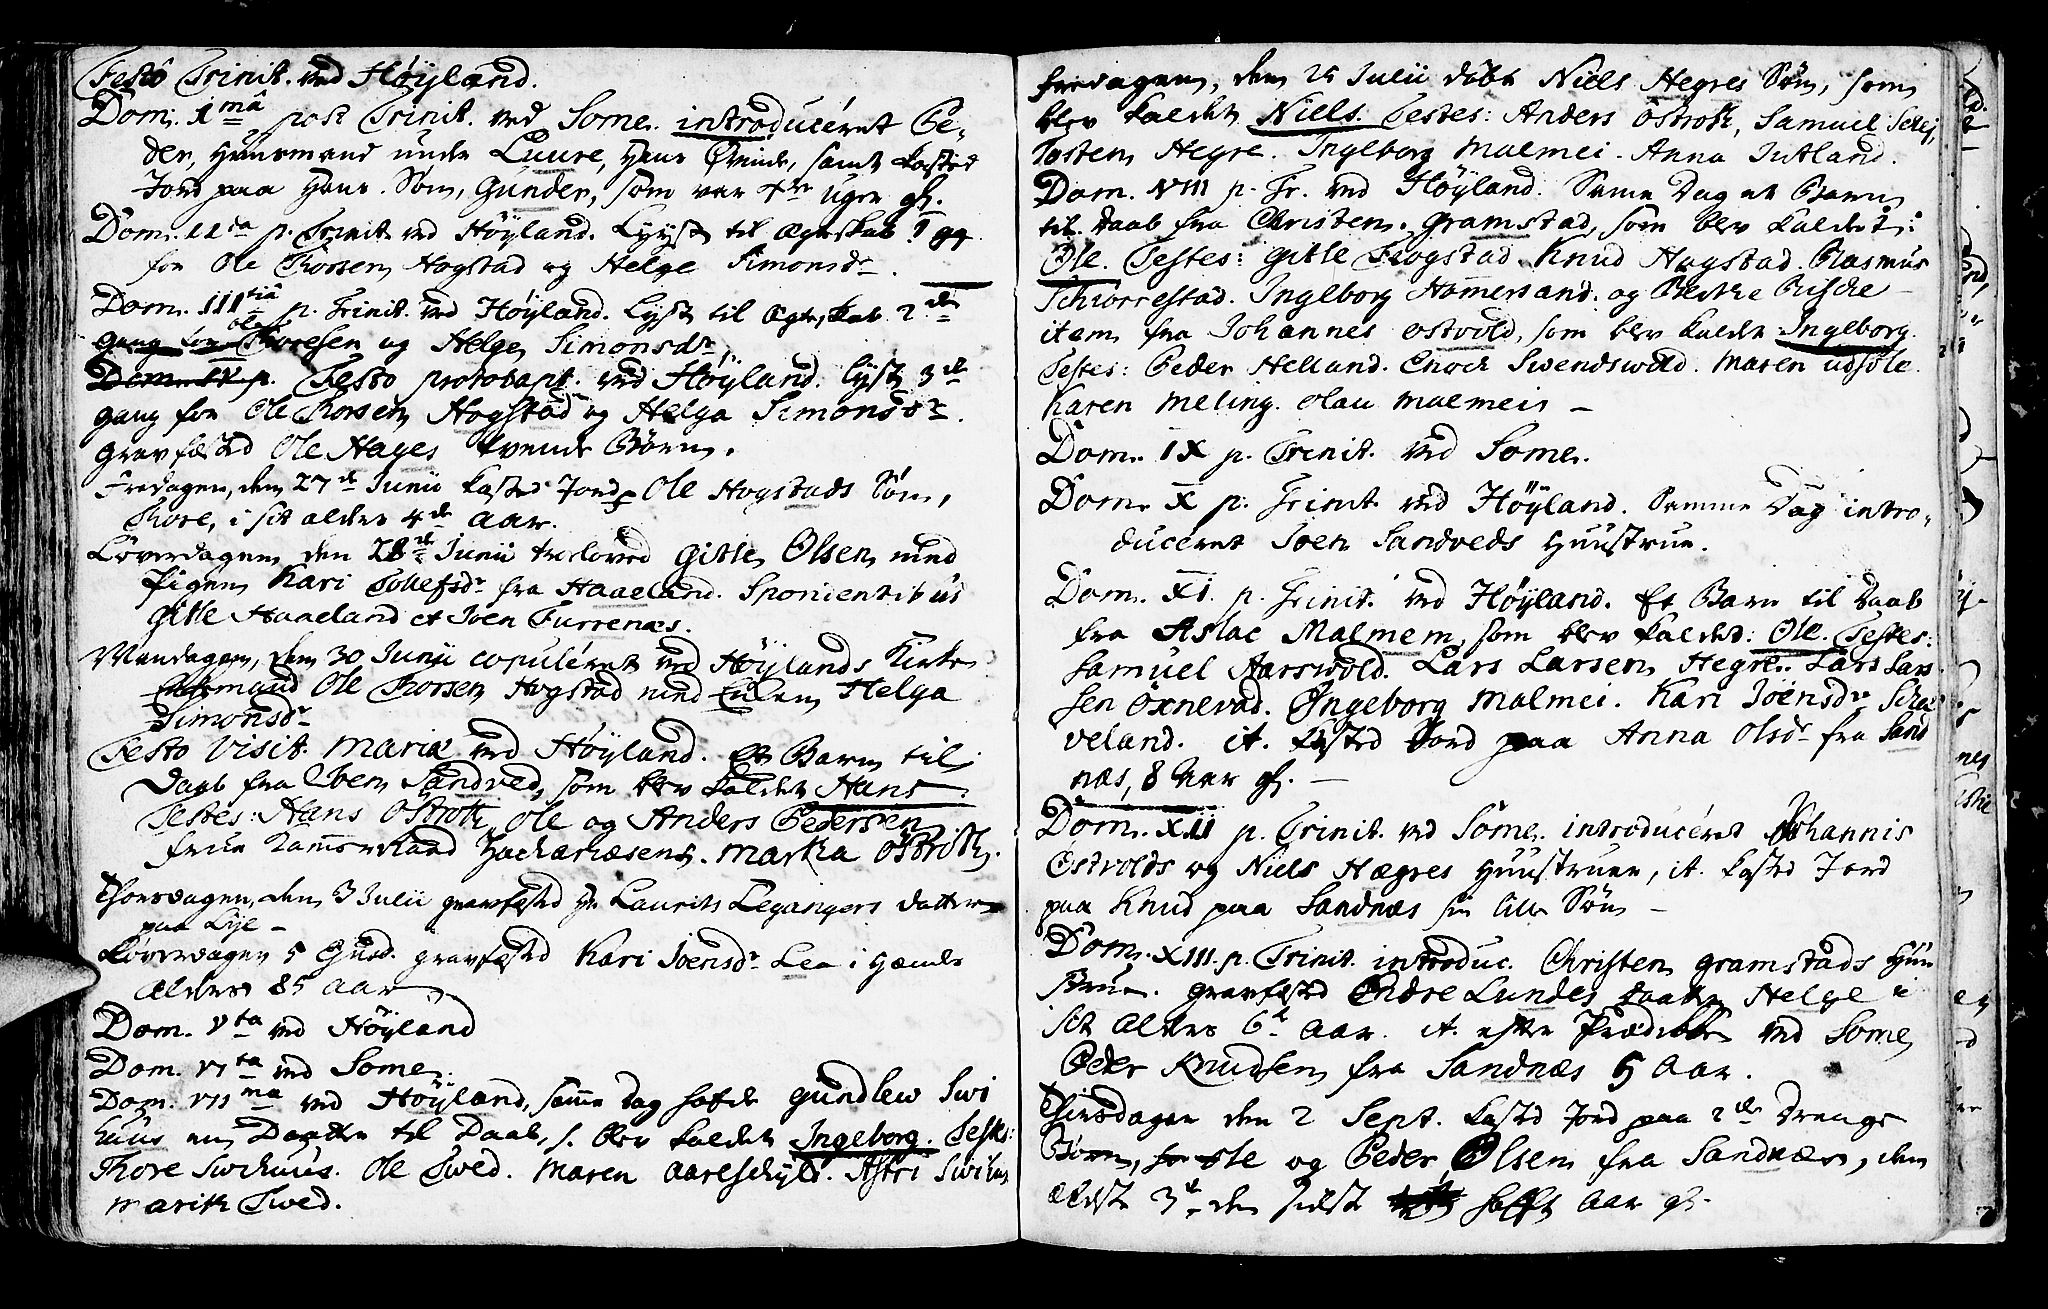 Festo Trinit. ved Höyland.
Dom. 1mâ post Trinit. ved Some. introduceret Pe-
der, Huusmand under Luure, Hans Qvinde, samt kasted
Jord paa Hans Søn, Gunder, som var 4re Uger gl.
Dom. IIda p. Trinit ved Höyland. Lyyst til Ægteskab 1 gg
for Ole Thorsen Hogstad og Helge Simonsdr.
Dom. IIItiâ p. Trinit. ved Höyland. Lyst til Ægteskab 2den
gang for Ole Thoresen og Helge Simonsdr
Dom. IV p. Festo protobapt. ved Höyland. lyst 3die
gang for Ole Thorsen Hogstad og Helga Simonsdr.
gravfæsted Ole Hayes tvende Børn.
Fredagen, den 27de Junii kasted Jord p Ole Hogstads Søn,
Thore, i sit alder 4de aar.
Løverdagen den 28de Junii trolovede Gitle Olsen med
Pigen Kari Tollefsdr fra Haaeland. Sponientibus
Gitle Haaeland et Joen Furrenæs.
Mandagen, den 30 Junii copuleret ved Höylands Kirke
Enkemand Ole Thorsen Hogstad med Enken Helga
Simonsdr
Festo Visit. Mariæ ved Höyland. Et Barn til
Daab fra Joen Sandved, som blev kaldet Hans.
Testes: Hans Ostrott, Ole og Anders Pedersen
Frue Zachariæsens. Martha Ostrott.
Thorsdagen, den 3 Julii gravfæsted Hr Laurits Legangers datter
paa Lye -
Løverdagen 5 Ejusd. gravfæsted Kari Joensdr Lea i Hendes
Alders 85 aar
Dom. Vta ved Höyland
Dom. VIta ved Some.
Dom. VIIma ved Höyland, samme Dag hafde Gundlew Swi
huus en Daatter til Daab, s. blev kaldet Ingeborg. Testes:
Thore Swihuus. Ole Twed. Maren Aareschyld. Astri Swihus
Marith Twed.
Fredagen, den 25 Julii døbt Niels Hegres Søn, som
blev kaldet Niels. Testes: Anders Ostrott, Samuel
Tosten Hegre. Ingeborg Malmei. Anna Jutland.
Dom. VIII p. Tr. ved Höyland. Samme Dag et Barn
til Daab fra Christen Gramstad, som blev kaldet:
Ole. Testes: Gitle Frogstad Knud Hogstad. Rasmus
Schiorrestad. Ingleborg Hamersand. og Berthe Rische
item fra Johannes Ostvold, som blev kaldet Ingeborg.
Testes: Peder Helland. Enoch Swendswold. Maren udsole.
Karen Meling. Olau Malmeis -
Dom. IX p. Trinit. ved Some.
Dom. X p. Trinit. ved Höyland. Samme Dag intro-
duceret Joen Sandveds Huustrue.
Dom. XI. p. Trinit. ved Höyland. Et Barn til Daab
fra Aslac Malmem, som blev kaldet: Ole. Testes:
Samuel Aarswold. Lars Larsen Hegre. Lars Lars
sen Oxnevad. Ingeborg Malmei. Kari Joensdr
veland. it. kasted Jord paa Anna Olsdr fra Sand
næs, 8 Aar gl. -
Dom. XII p. Trinit. ved Some. introduceret Johannis
Ostvolds og Niels Hægres Huustruer, it. kasted Jord
paa Knud paa Sandnæs sin lille Søn -
Dom. XIII. p. Trinit. introduc. Christen Gramstads Huu
strue. gravfæsted Endre Lundes Daatter Helge i
sit Alders 6te Aar. it. efter Prædiken ved Some
Peder Knudsen fra Sandnæs 5 Aar.
Thirsdagen den 2 Sept. kasted Jord paa 2de Drenge
Børn, Ole og Peder Olsen fra Sandnæs, den
ældste 3de, den sidste halft Aar gl.